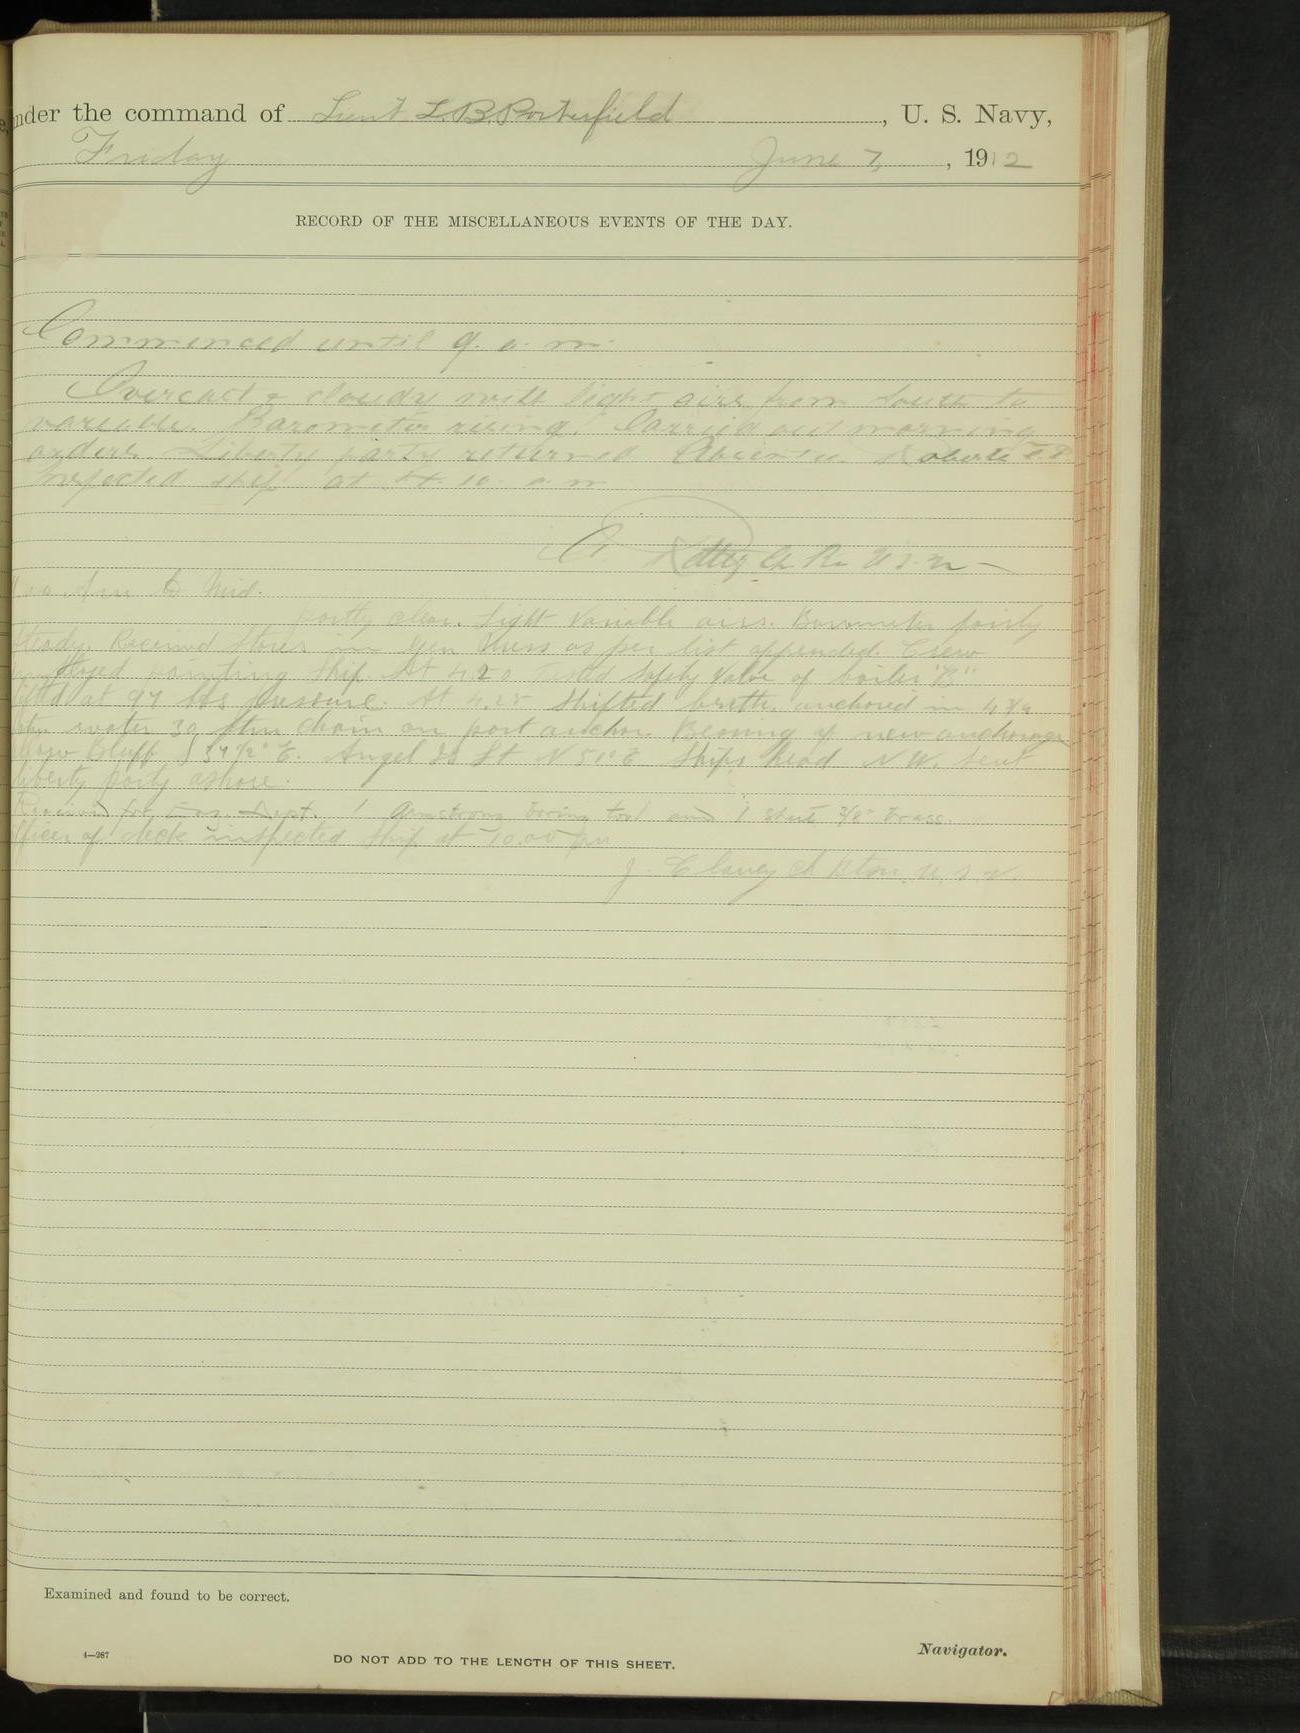 nder the command of Lieut L.B. Porterfield, U. S. Navy,
Friday June 7, 1912
RECORD OF THE MISCELLANEOUS EVENTS OF THE DAY.
Commenced until 9. a. m.
Overcast & cloudy with light airs from South to
variable. Barometer rising. Carried out morning
orders. Liberty party returned Absentee. Roberts
Inspected ship at a. m
U.S.N
to Mid.
Partly clear. Light Variable airs. Barometer fairly
steady. Received stores in Gen Mess as per list appended. Crew
painting ship. At 4.20 tested safety valve of boiler "B"
lifted at 97 lbs pressure. At 4.25 shifted berth, anchored in 4 3/4
water 30 fthm chain on port anchor. Bearing of new anchorage
Bluff S 34 1/2° E. Angel Is Lt N 51° E Ships head NW. Sent
liberty party ashore.
Received for Eng. Dept. 1 Armstrong boring tool and 1 3/8" brass.
Officer of deck inspected ship at 10.00 pm
J. U.S.N.
Examined and found to be correct.
4—287
DO NOT ADD TO THE LENGTH OF THIS SHEET.
Navigator.